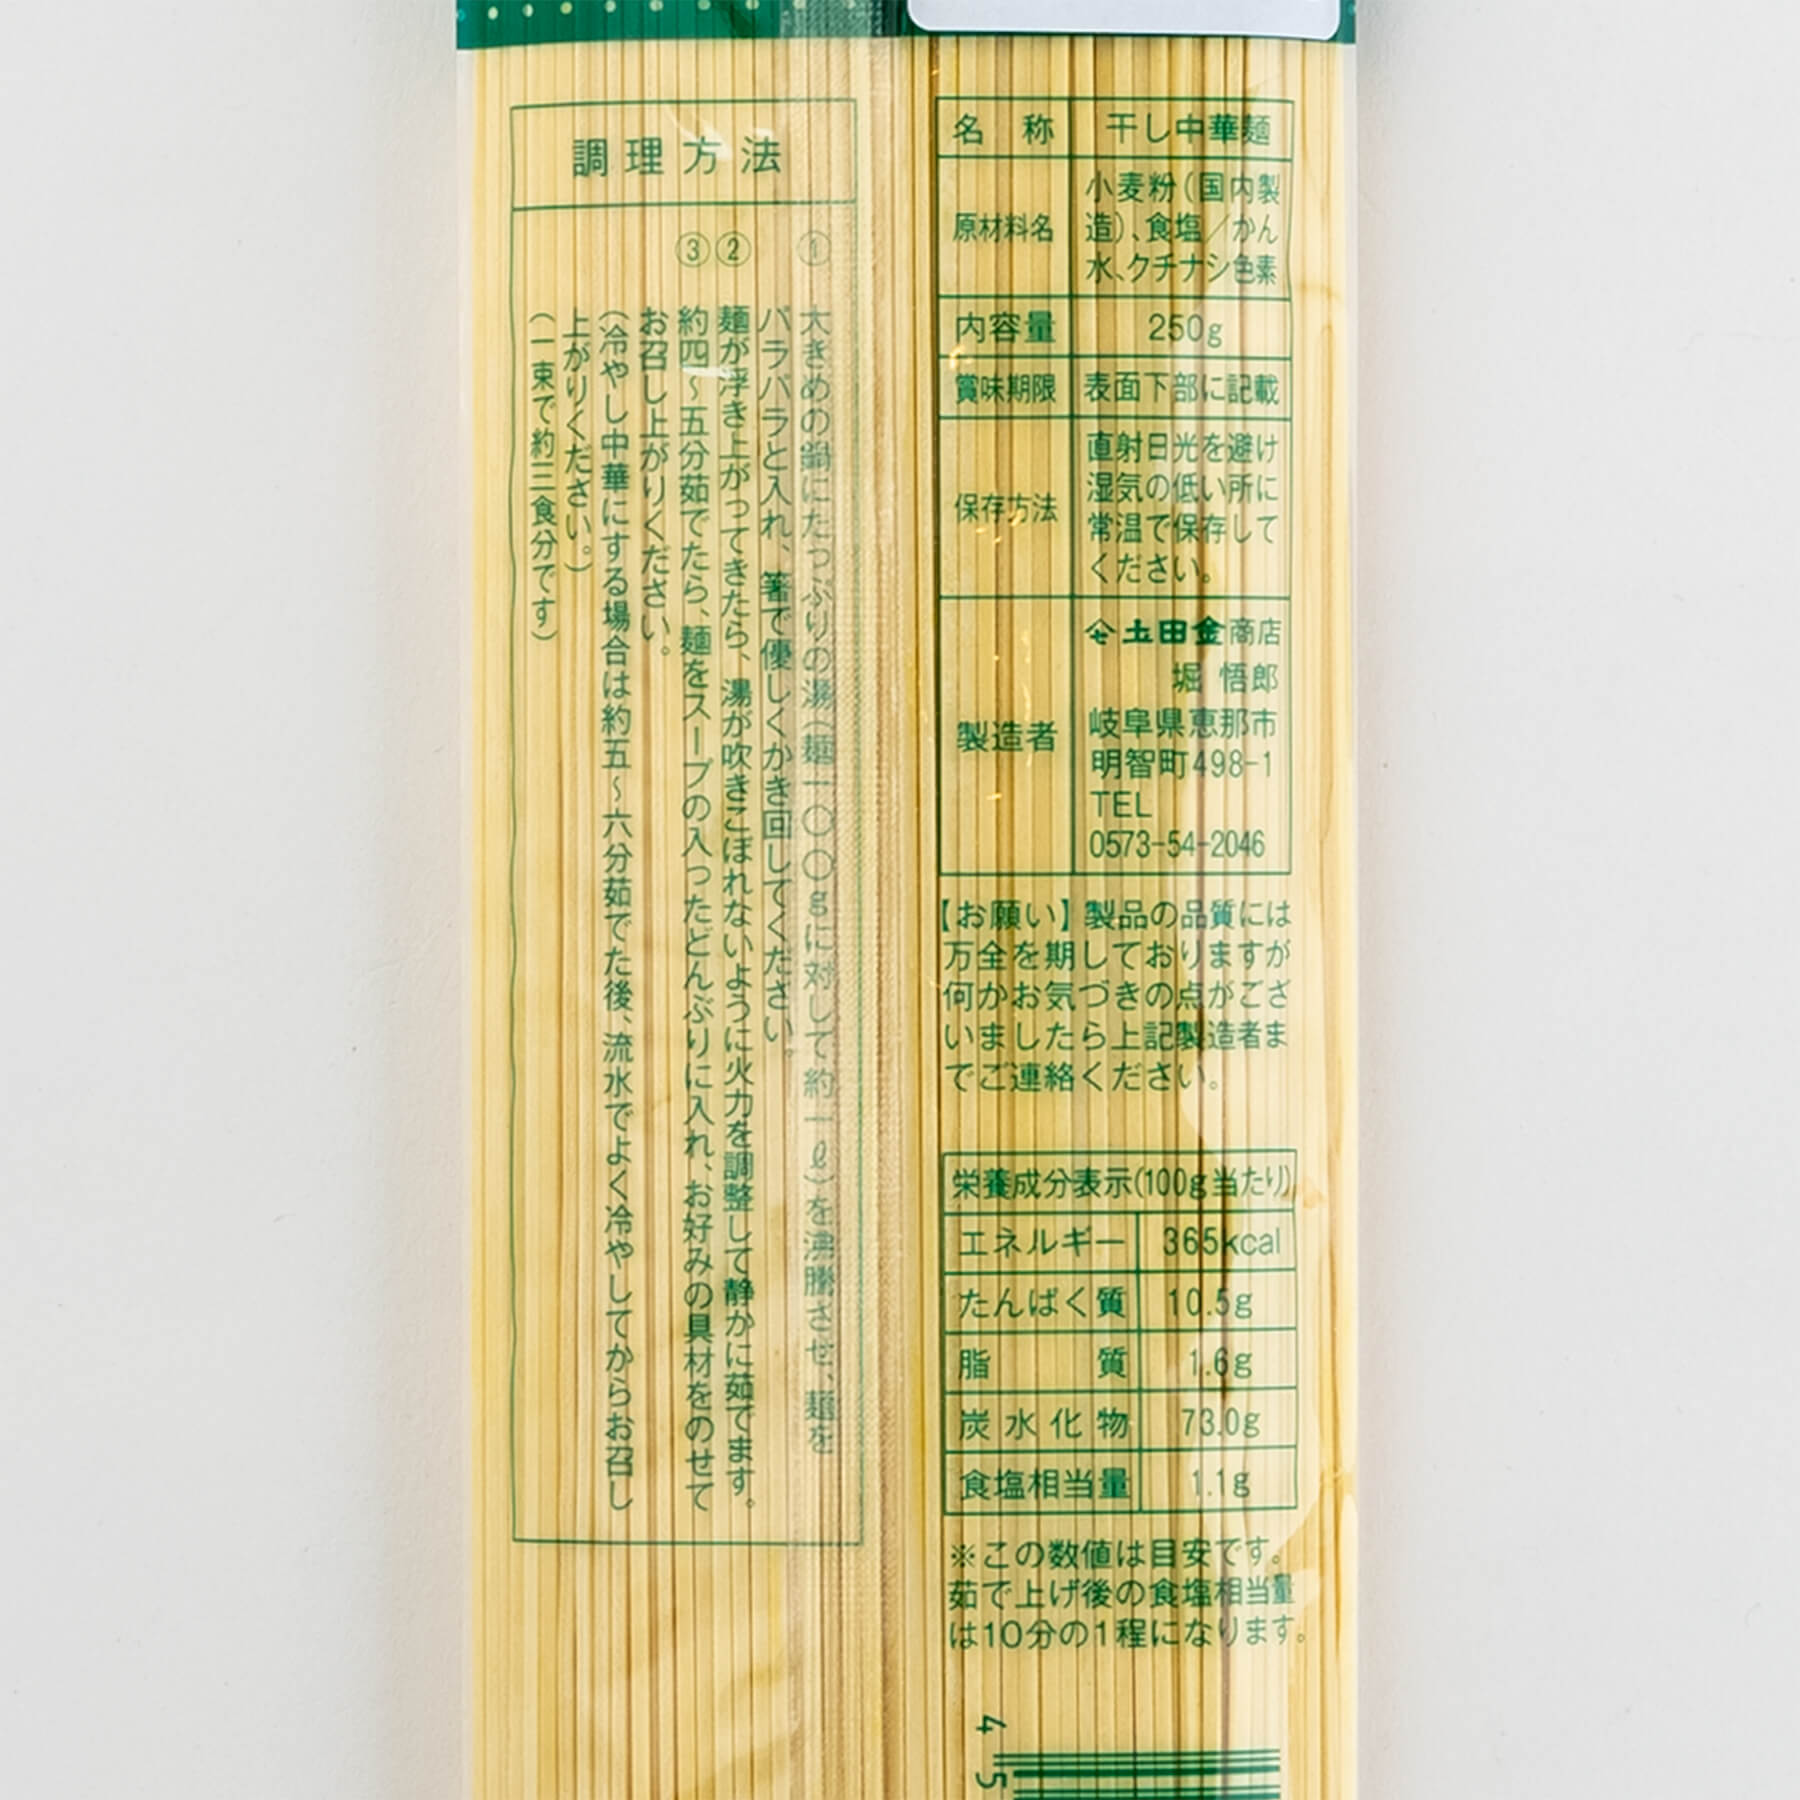 調理方法
① 大きめの鍋にたっぷりの湯（麺一〇〇gに対して約一ℓ）を沸騰させ、麺を
バラバラと入れ、箸で優しくかき回してください。
② 麺が浮き上がってきたら、湯が吹きこぼれないように火力を調整して静かに茹でます。
③ 約四～五分茹でたら、麺をスープの入ったどんぶりに入れ、お好みの具材をのせて
お召し上がりください。
（冷やし中華にする場合は約五～六分茹でた後、流水でよく冷やしてからお召し
上がりください。）
（一束で約三食分です）
名称 干し中華麺
原材料名 小麦粉（国内製
造）、食塩／かん
水、クチナシ色素
内容量 250g
賞味期限 表面下部に記載
保存方法 直射日光を避け
湿気の低い所に
常温で保存して
ください。
製造者 土田金商店
堀 悟郎
岐阜県恵那市
明智町498-1
TEL
0573-54-2046
【お願い】製品の品質には
万全を期しておりますが
何かお気づきの点がござ
いましたら上記製造者ま
でご連絡ください。
栄養成分表示(100g当たり)
エネルギー 365kcal
たんぱく質 10.5g
脂質 1.6g
炭水化物 73.0g
食塩相当量 1.1g
※この数値は目安です。
茹で上げ後の食塩相当量
は10分の1程になります。
4 5